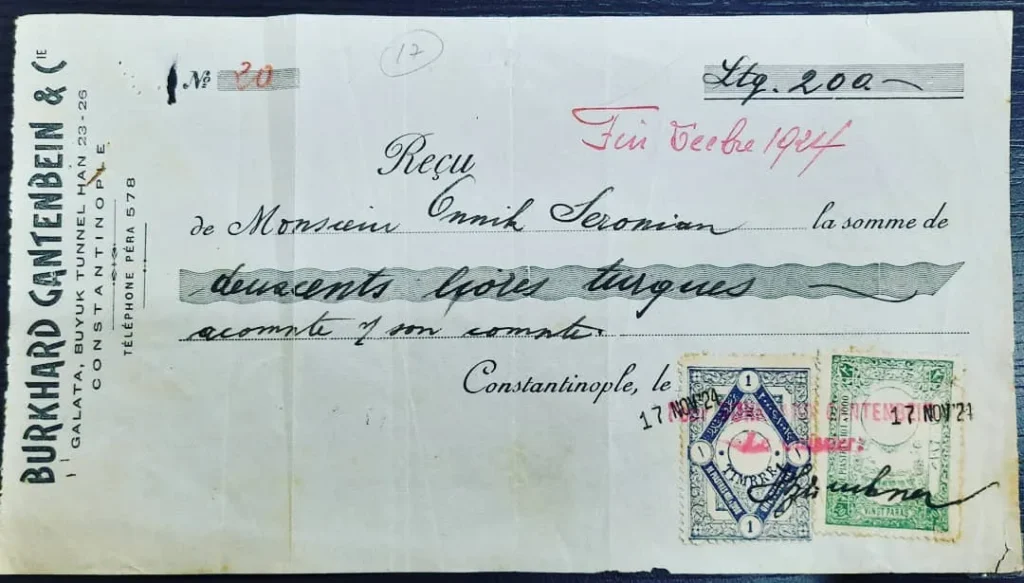 BURKHARD GANTENBEIN & CIE
GALATA, BUYUK TUNNEL HAN 23 - 26
CONSTANTINOPLE
TÉLÉPHONE PÉRA 578
17
No 20
Ltq. 200 —
Fin Decbre 1924
Reçu
de Monsieur Onnik Seronian la somme de
deuxcents livres turques
acompte s/ son compte.
Constantinople, le
17 NOV '24 17 NOV '24
GANTENBEIN
1
1 1
TIMBRE
1
VINGT PARAS